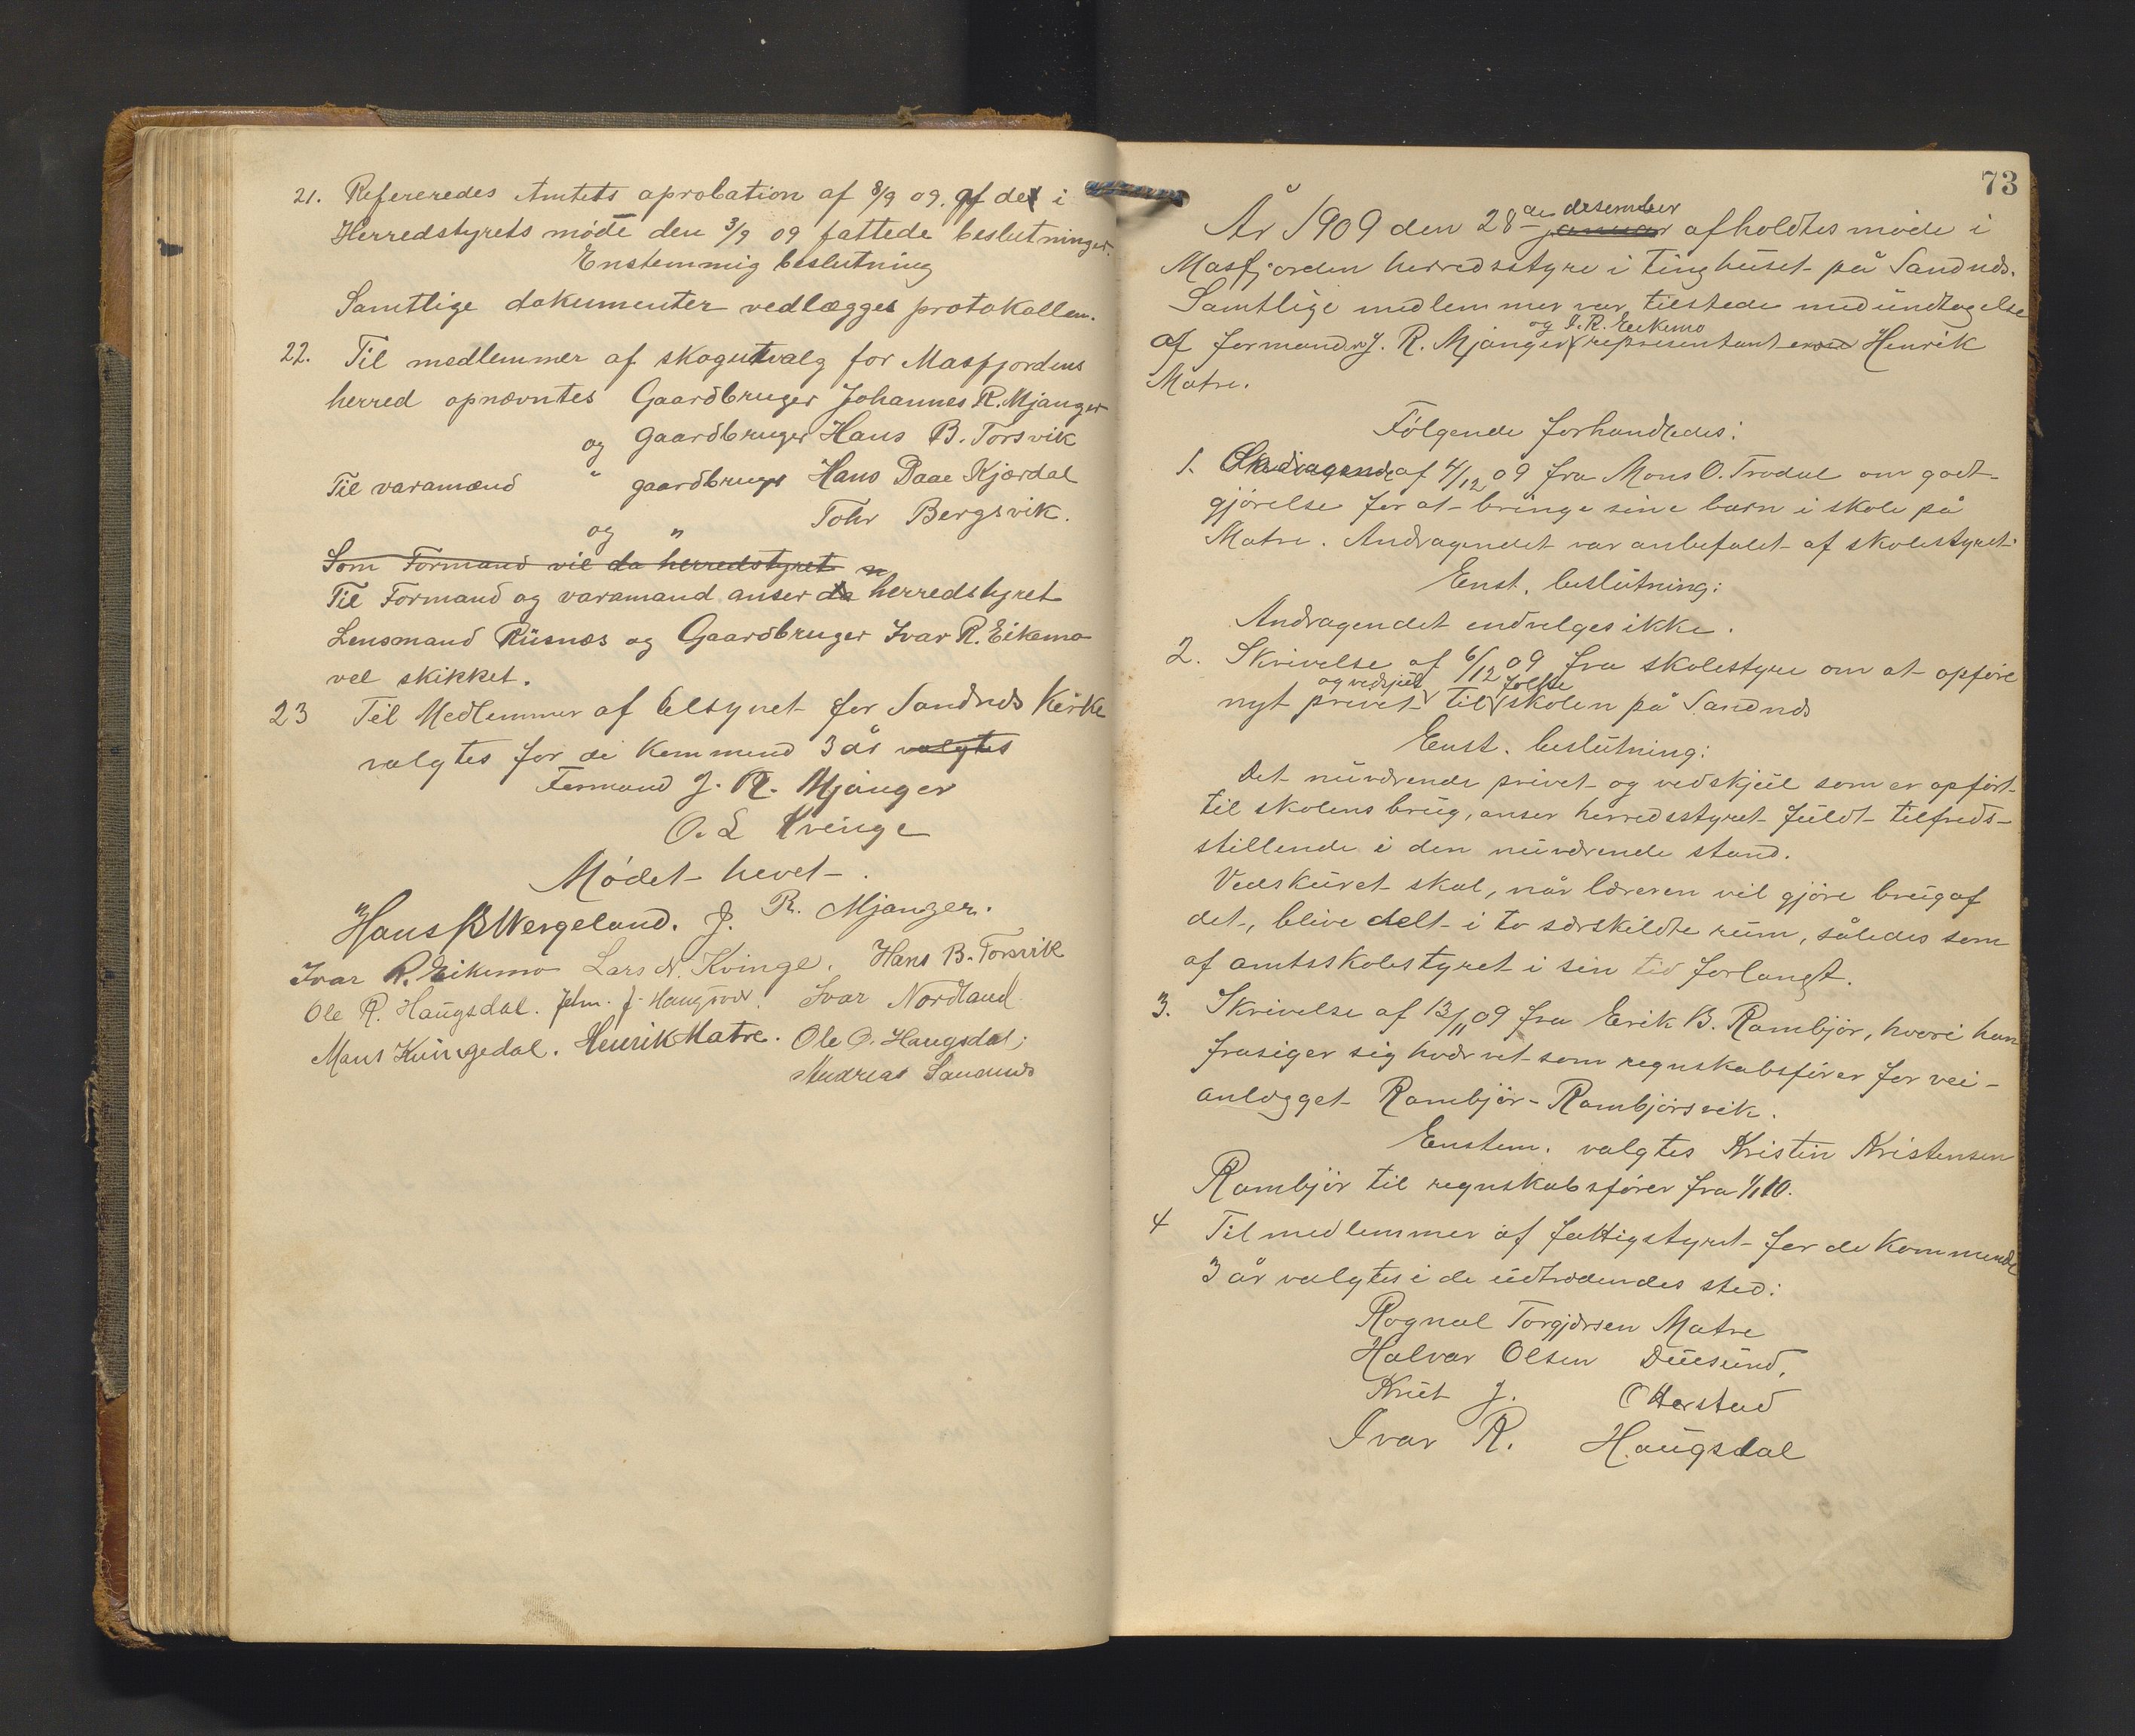 21. Refereredes Amtets aprobation af 8/9 09. af de i
Herredstyrets møde den 3/9 09 fattede beslutninger.
Enstemmig beslutning
Samtlige dokumenter vedlægges protokollen.
22. Til medlemmer af skogutvalg for Masfjordens
herred opnævntes Gaardbruger Johannes R. Mjanger
og gaardbruger Hans B. Torsvik
Til varamænd " gaardbruger Hans Daae Kjærdal
og " Tohr Bergsvik.
Som Formand vil da herredstyret
Til Formand og varamand anser da herredstyret
Lensmand Risnæs og Gaardbruger Ivar R. Eikemo
vel skikket.
23 Til Medlemmer af tilsynet for Sandnds Kirke
valgtes for di kommend 3 år valgtes
Formand J. R. Mjanger
O. L Kvinge
Mødet hevet.
Hans B Wergeland. J. R. Mjanger.
Ivar R. Eikemo Lars N. Kvinge. Hans B. Torsvik
Ole R. Haugsdal. Johs. J. Haugsvær. Ivar Nordland
Mans Kvingedal. Henrik Matre. Ole O. Haugsdal;
Andreas Sandnæs
73
År 1909 den 28de desember januar afholdtes møde i
Masfjorden herredsstyre i tinghuset på Sandnds.
Samtlige medlemmer var tilstede med undtagelse
af formand J. R. Mjanger og I. R. Eikemo representant Henrik
Matre.
Følgende forhandledes:
1. Andragende af 4/12 09 fra Mons O. Trodal om godt-
gjørelse for at bringe sine barn i skole på
Matre. Andragendet var anbefalet af skolestyret.
Enst. beslutning:
Andragendet endvelges ikke.
2. Skrivelse af 6/12 09 fra skolestyre om at opføre
nyt privet og vedsjul til folke skolen på Sandnds
Enst. beslutning:
Det nuværende privet og vedskjul som er opført
til skolens brug, anser herredsstyret fuldt tilfreds-
stillende i den nuværende stand.
Vedskuret skal, når læreren vil gjøre brug af
det, blive delt i to særskildte rum, således som
af amtsskolestyret i sin tid forlangt.
3. Skrivelse af 13/11 09 fra Erik B. Rambjør, hvori han
frasiger sig hværvet som regnskabsfører for vei-
anlægget Rambjør - Rambjørsvik.
Enstem. valgtes Kristin Kristensen
Rambjør til regnskabsfører fra 1/1 10.
4 Til medlemmer af fattigstyret for de kommende
3 år valgtes i de udtrædendes sted:
Rognal Torgjersen Matre
Halvar Olsen Duesund,
Knut J. Otterstad
Ivar R. Haugsdal